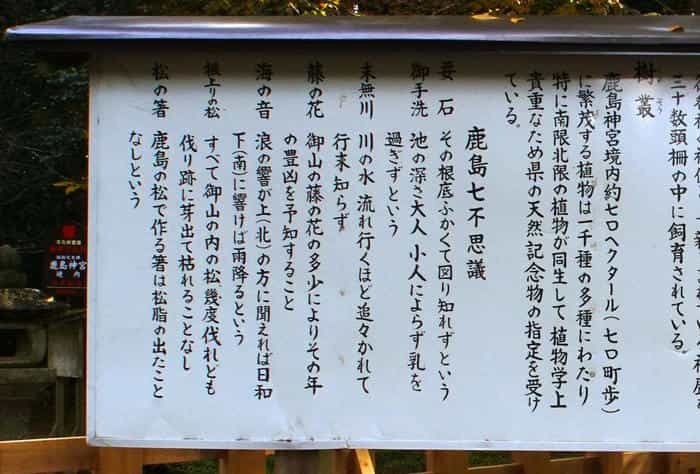 三十数頭柵の中に飼育されている。
樹叢
鹿島神宮境内約七〇ヘクタール(七〇町歩)
に繁茂する植物は一千種の多種にわたり
特に南限北限の植物が同生して植物学上
貴重なため県の天然記念物の指定を受け
ている。
鹿島七不思議
要石 その根底ふかくて図り知れずという
御手洗 池の深さ大人小人によらず乳を
過ぎずという
末無川 川の水流れ行くほど追々かれて
行末知らず
藤の花 御山の藤の花の多少によりその年
の豊凶を予知すること
海の音 浪の響が上(北)の方に聞えれば日和
下(南)に響けば雨降るという
根上りの松 すべて御山の内の松幾度伐れども
伐り跡に芽出て枯れることなし
松の箸 鹿島の松で作る箸は松脂の出たこと
なしという
鹿島神宮
境内